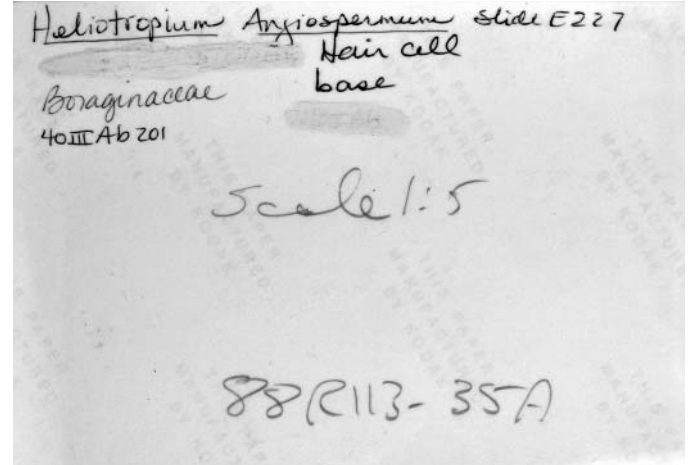 Heliotropium Angiospermum Slide E227
Hair cell
base
Boraginaceae
40IIIAb 201
Scale 1:5
88R113-35A
THIS PAPER
MANUFACTURED
BY KODAK